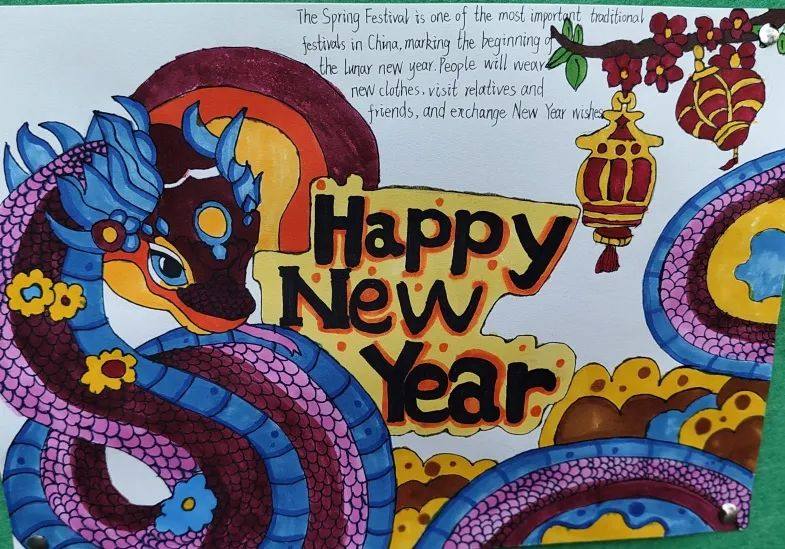 The Spring Festival is one of the most important traditional
festivals in China, marking the beginning of
the lunar new year. People will wear
new clothes, visit relatives and
friends, and exchange New Year wishes.
Happy
New
Year